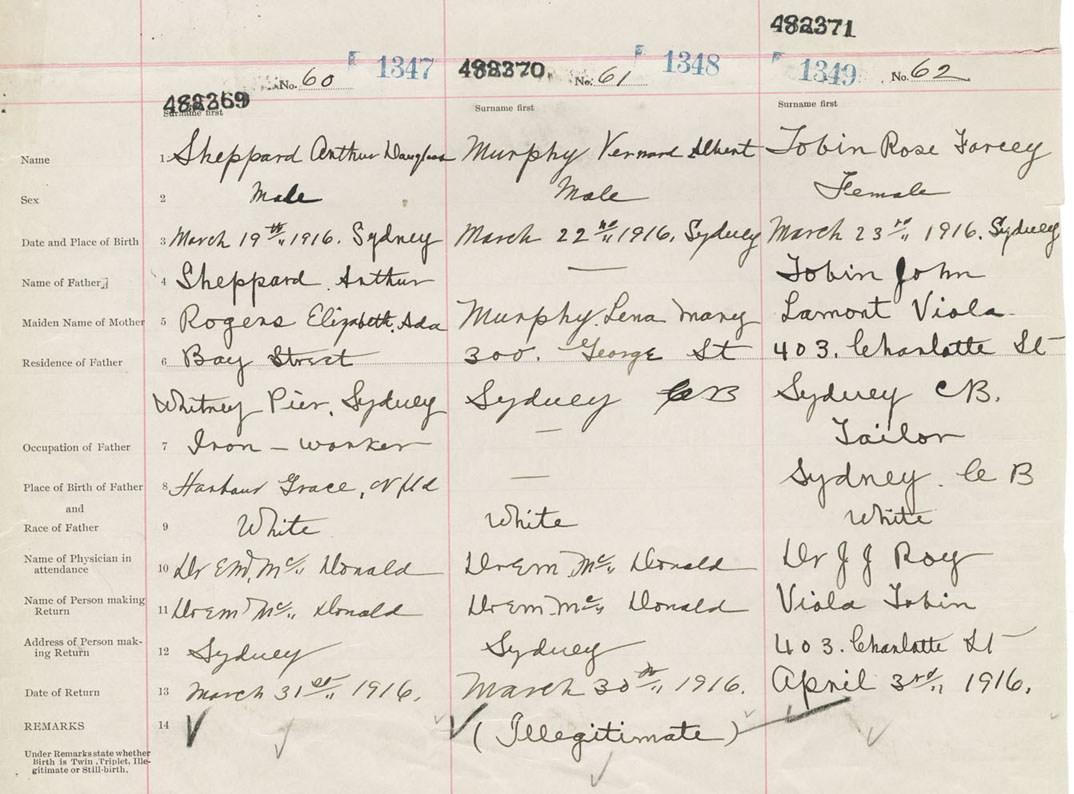 482371
1347 482370 1348 1349
No. 60 No. 61 No. 62
482369
Surname first Surname first Surname first
Name 1 Sheppard Arthur Douglass Murphy Vernard Albert Tobin Rose
Sex 2 Male Male Female
Date and Place of Birth 3 March 19th 1916. Sydney March 22nd 1916. Sydney March 23rd 1916. Sydney
Name of Father 4 Sheppard Arthur — Tobin John
Maiden Name of Mother 5 Rogers Elizabeth Ada Murphy Lena Mary Lamont Viola
Residence of Father 6 Bay Street 300. George St 403. Charlotte St
Whitney Pier, Sydney Sydney CB Sydney CB.
Occupation of Father 7 Iron - worker — Tailor
Place of Birth of Father 8 Harbour Grace, Nfld — Sydney. CB
and
Race of Father 9 White White White
Name of Physician in
attendance 10 Dr EM, Mc Donald Dr EM Mc Donald Dr J J Roy
Name of Person making
Return 11 Dr EM Mc Donald Dr EM Mc Donald Viola Tobin
Address of Person mak-
ing Return 12 Sydney Sydney 403. Charlotte St
Date of Return 13 March 31st 1916. March 30th 1916. April 3rd 1916.
REMARKS 14 (Illegitimate)
Under Remarks state whether
Birth is Twin, Triplet, Ille-
gitimate or Still-birth.